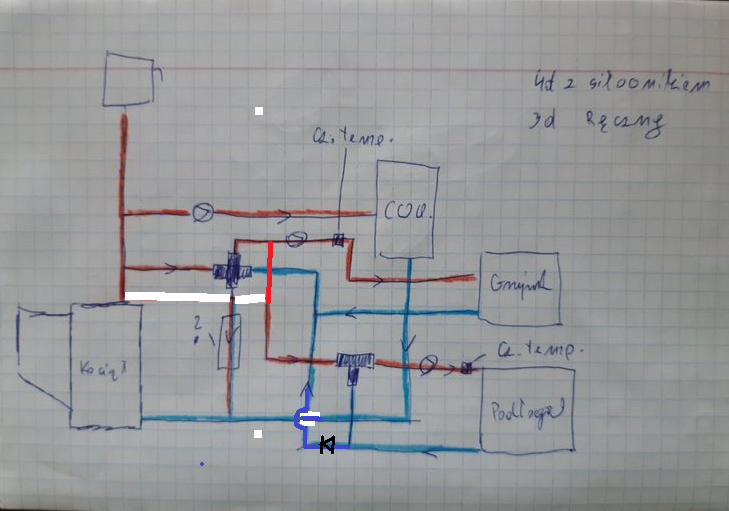 4d z siłownikiem
3d Ręczny
Cz. temp.
CWU.
Grzejnik
2
Cz. temp.
Kocioł
Podłoga